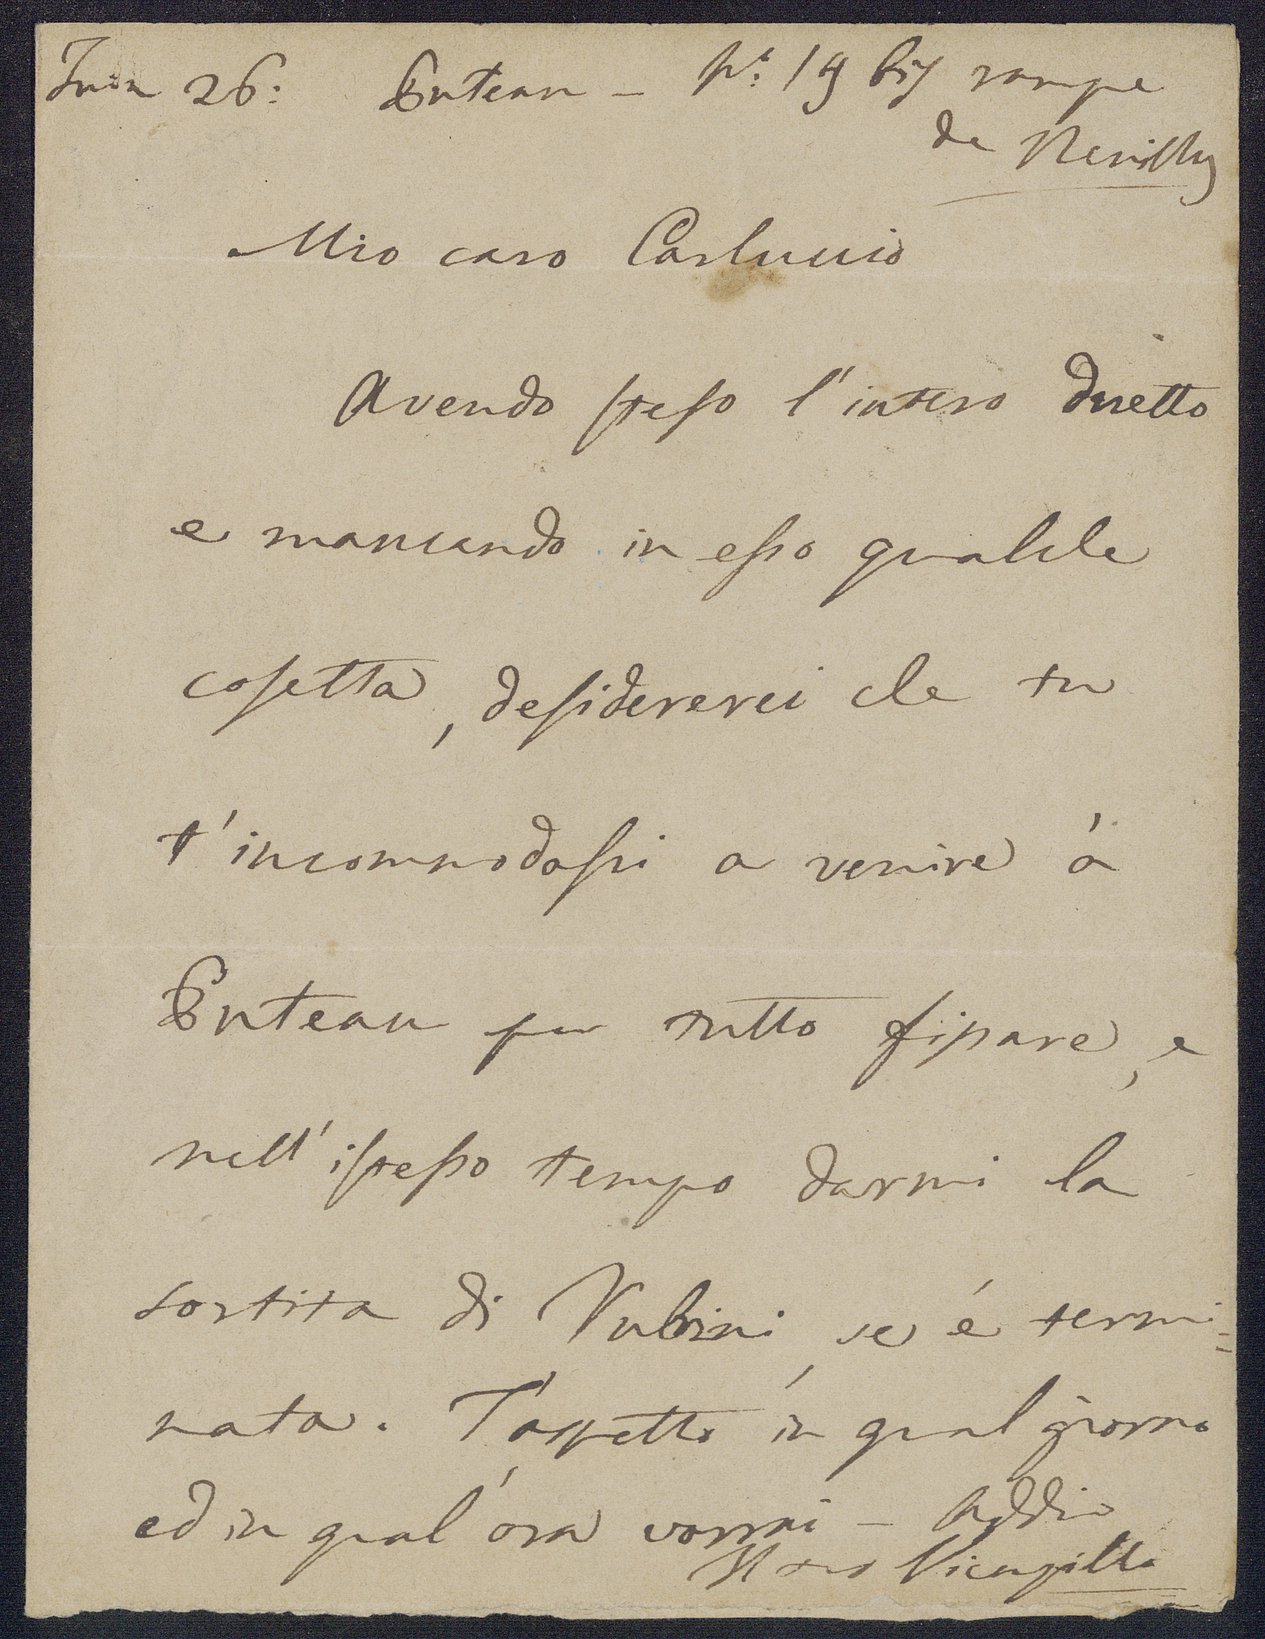 Juin 26: Puteau - N.º 19 bis rampe
de Neuilly
Mio caro Carluccio
Avendo steso l'intero duetto
e mancando in esso qualche
cosetta, desidererei che tu
t'incommodassi a venire à
Puteau per tutto fissare, e
nell'istesso tempo darmi la
sortita di Rubini, se é termi=
nata. T'aspetto in qual giorno
ed in qual'ora vorrai - Addio
Il tuo